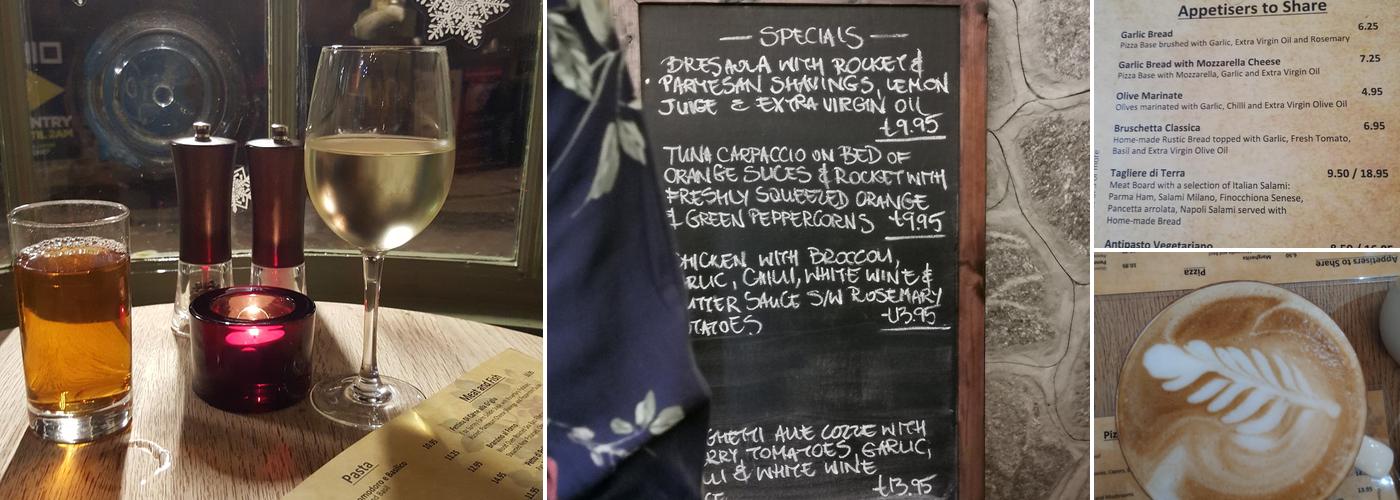 NTRY
TIL 2AM
Meat and Fish
Pasta
Pomodoro e Basilico
— SPECIALS —
BRESAOLA WITH ROCKET &
PARMESAN SHAVINGS, LEMON
JUICE & EXTRA VIRGIN OIL
£9.95
TUNA CARPACCIO ON BED OF
ORANGE SLICES & ROCKET WITH
FRESHLY SQUEEZED ORANGE
& GREEN PEPPERCORNS £9.95
CHICKEN WITH BROCCOLI,
RLIC, CHILLI, WHITE WINE &
UTTER SAUCE S/W ROSEMARY
OTATOES £13.95
GHETTI ALLE COZZE WITH
RRY, TOMATOES, GARLIC,
LLI & WHITE WINE
£13.95
Appetisers to Share
Garlic Bread 6.25
Pizza Base brushed with Garlic, Extra Virgin Oil and Rosemary
Garlic Bread with Mozzarella Cheese 7.25
Pizza Base with Mozzarella, Garlic and Extra Virgin Oil
Olive Marinate 4.95
Olives marinated with Garlic, Chilli and Extra Virgin Olive Oil
Bruschetta Classica 6.95
Home-made Rustic Bread topped with Garlic, Fresh Tomato,
Basil and Extra Virgin Olive Oil
Tagliere di Terra 9.50 / 18.95
Meat Board with a selection of Italian Salami:
Parma Ham, Salami Milano, Finocchiona Senese,
Pancetta arrolata, Napoli Salami served with
Home-made Bread
Antipasto Vegetariano
Appetisers to Share
Pizza
Margherita